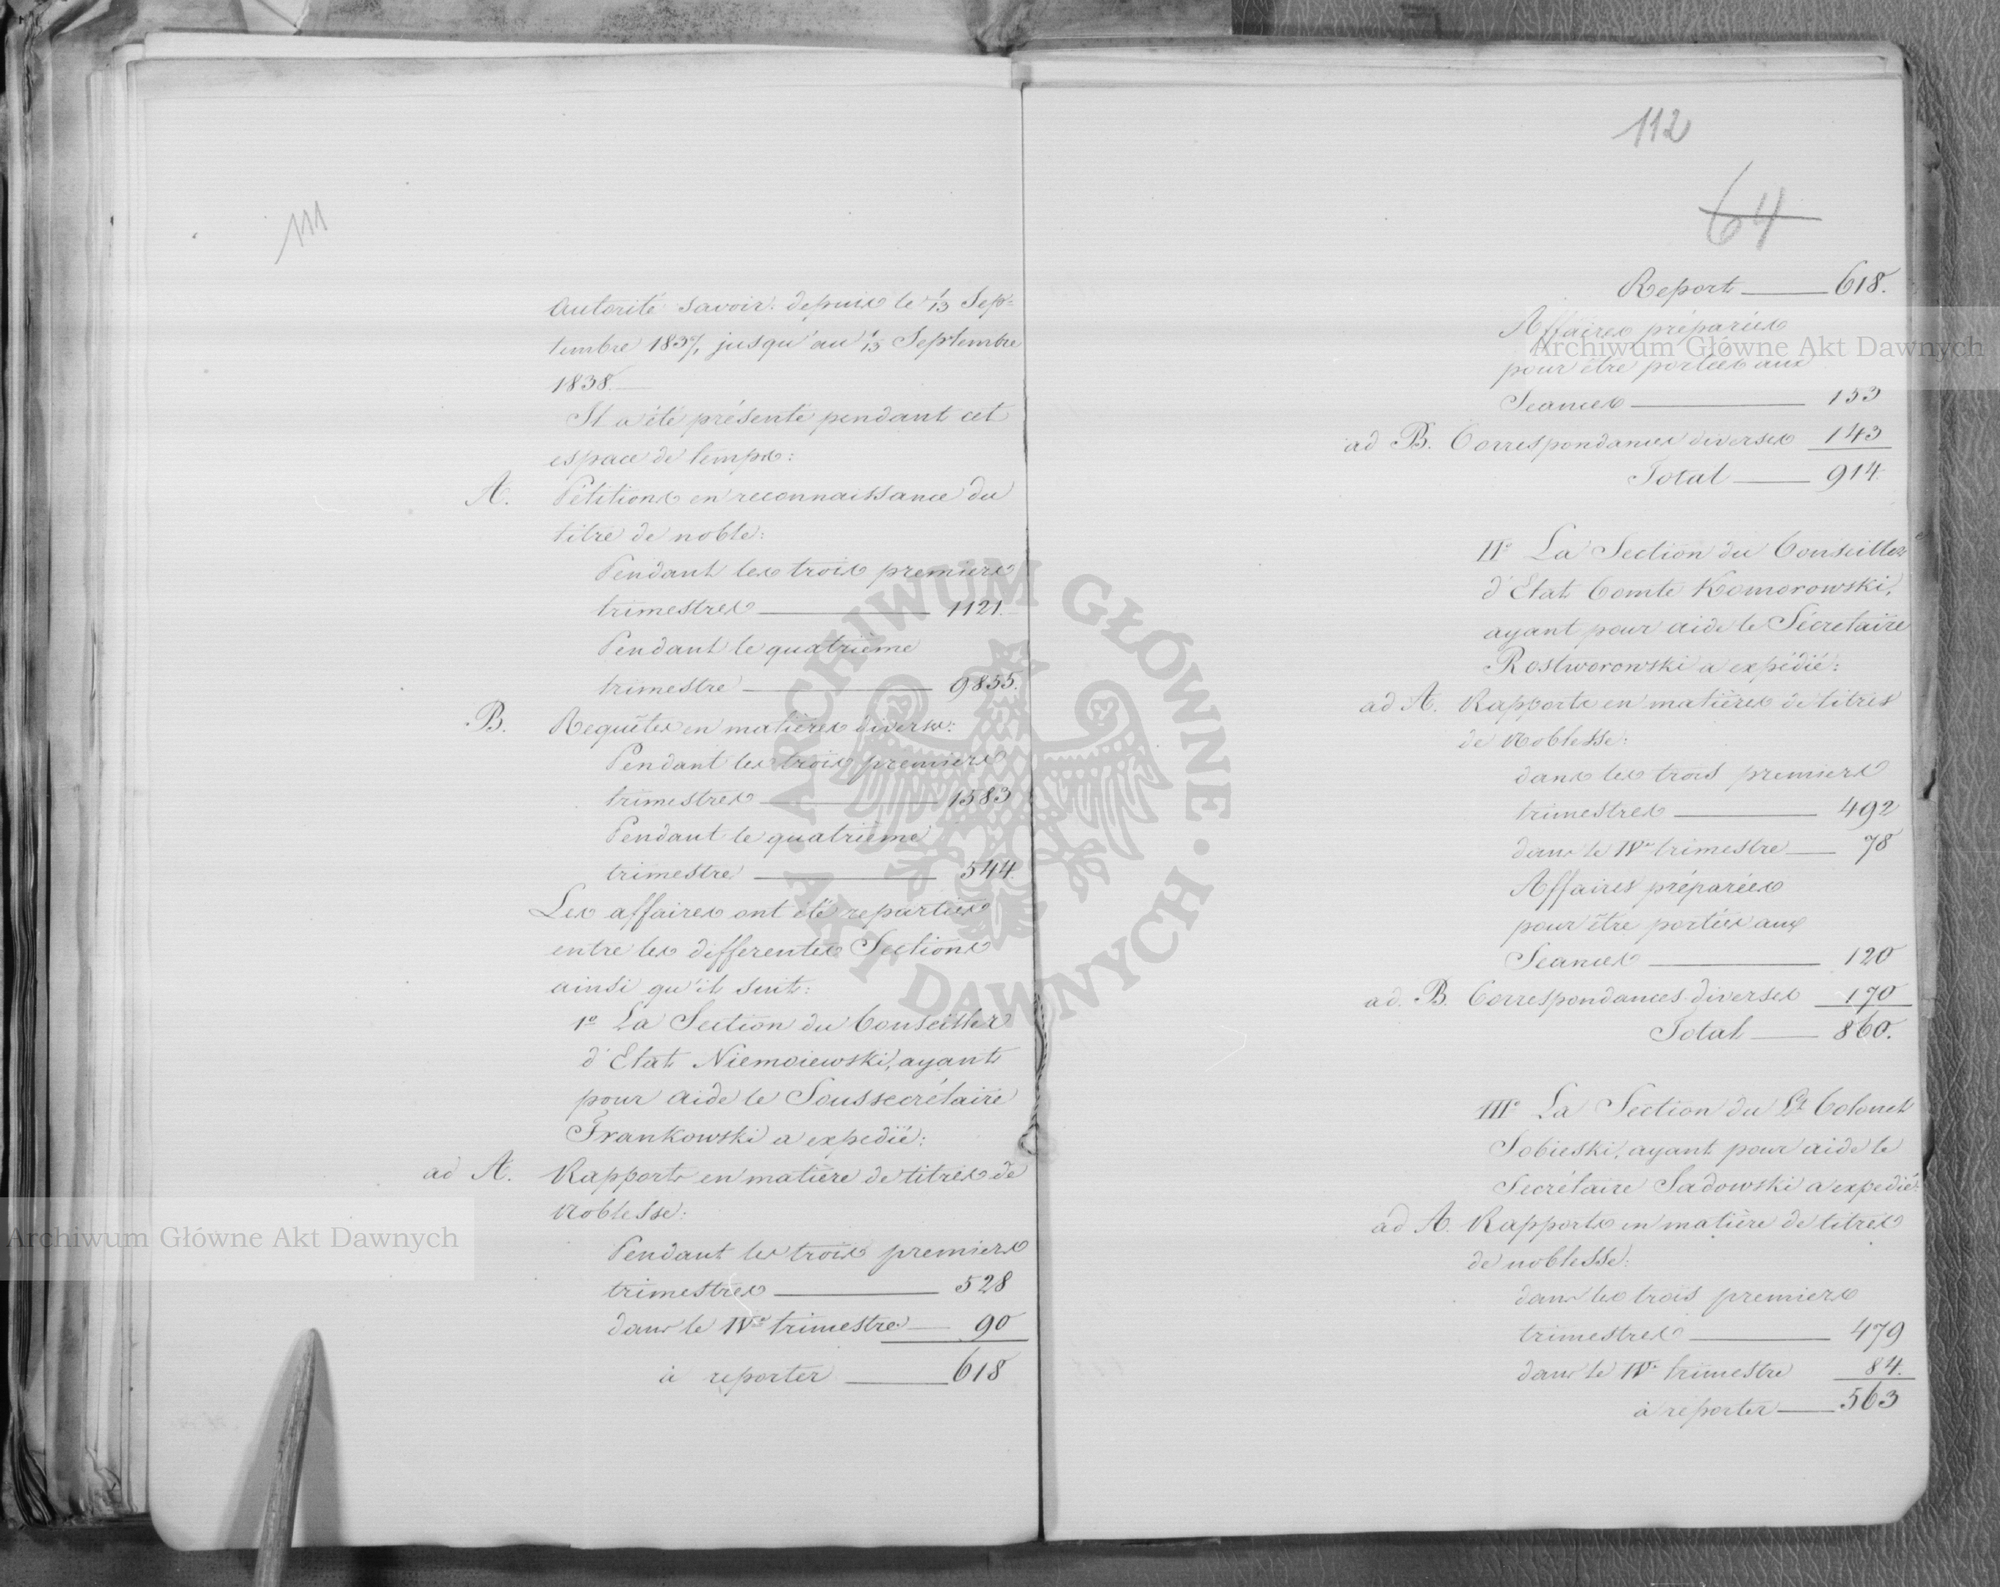 111
Autorité savoir: depuis le 1/13 Sep=
tembre 1837, jusqu'au 1/13 Septembre
1838.
Il a été présenté pendant cet
espace de temps:
A. Pétitions en reconnaissance du
titre de noble:
Pendant les trois premiers
trimestres — 1121.
Pendant le quatrième
trimestre — 9855.
B. Requêtes en matières diverses:
Pendant les trois premiers
trimestres — 1583
Pendant le quatrième
trimestre — 544.
Les affaires ont été reparties
entre les differentes Sections
ainsi qu'il suit:
1º La Section du Conseiller
d'Etat Niemoiewski, ayant
pour aide le Soussecrétaire
Frankowski a expedié:
ad A. Rapports en matière de titres de
Noblesse:
Pendant les trois premiers
trimestres — 528
dans le IVe trimestre — 90
à reporter — 618
112
64
Report — 618.
Affaires préparées
pour être portées aux
Seances — 153
ad B. Correspondances diverses 143
Total — 914.
IIº La Section du Conseiller
d'Etat Comte Komorowski,
ayant pour aide le Sécretaire
Rostworowski a expédié:
ad A. Rapports en matières de titres
de Noblesse:
dans les trois premiers
trimestres — 492
dans le IVe trimestre — 78
Affaires préparées
pour être portées aux
Seances — 120
ad. B. Correspondances diverses 170
Total — 860.
IIIº La Section du Lt Colonel
Sobieski, ayant pour aide le
Secrétaire Sadowski a expedié:
ad A. Rapports en matière de titres
de noblesse:
dans les trois premiers
trimestres — 479
dans le IVe trimestre 84.
à reporter — 563
Archiwum Główne Akt Dawnych
Archiwum Główne Akt Dawnych
ARCHIWUM GŁÓWNE · AKT DAWNYCH ·